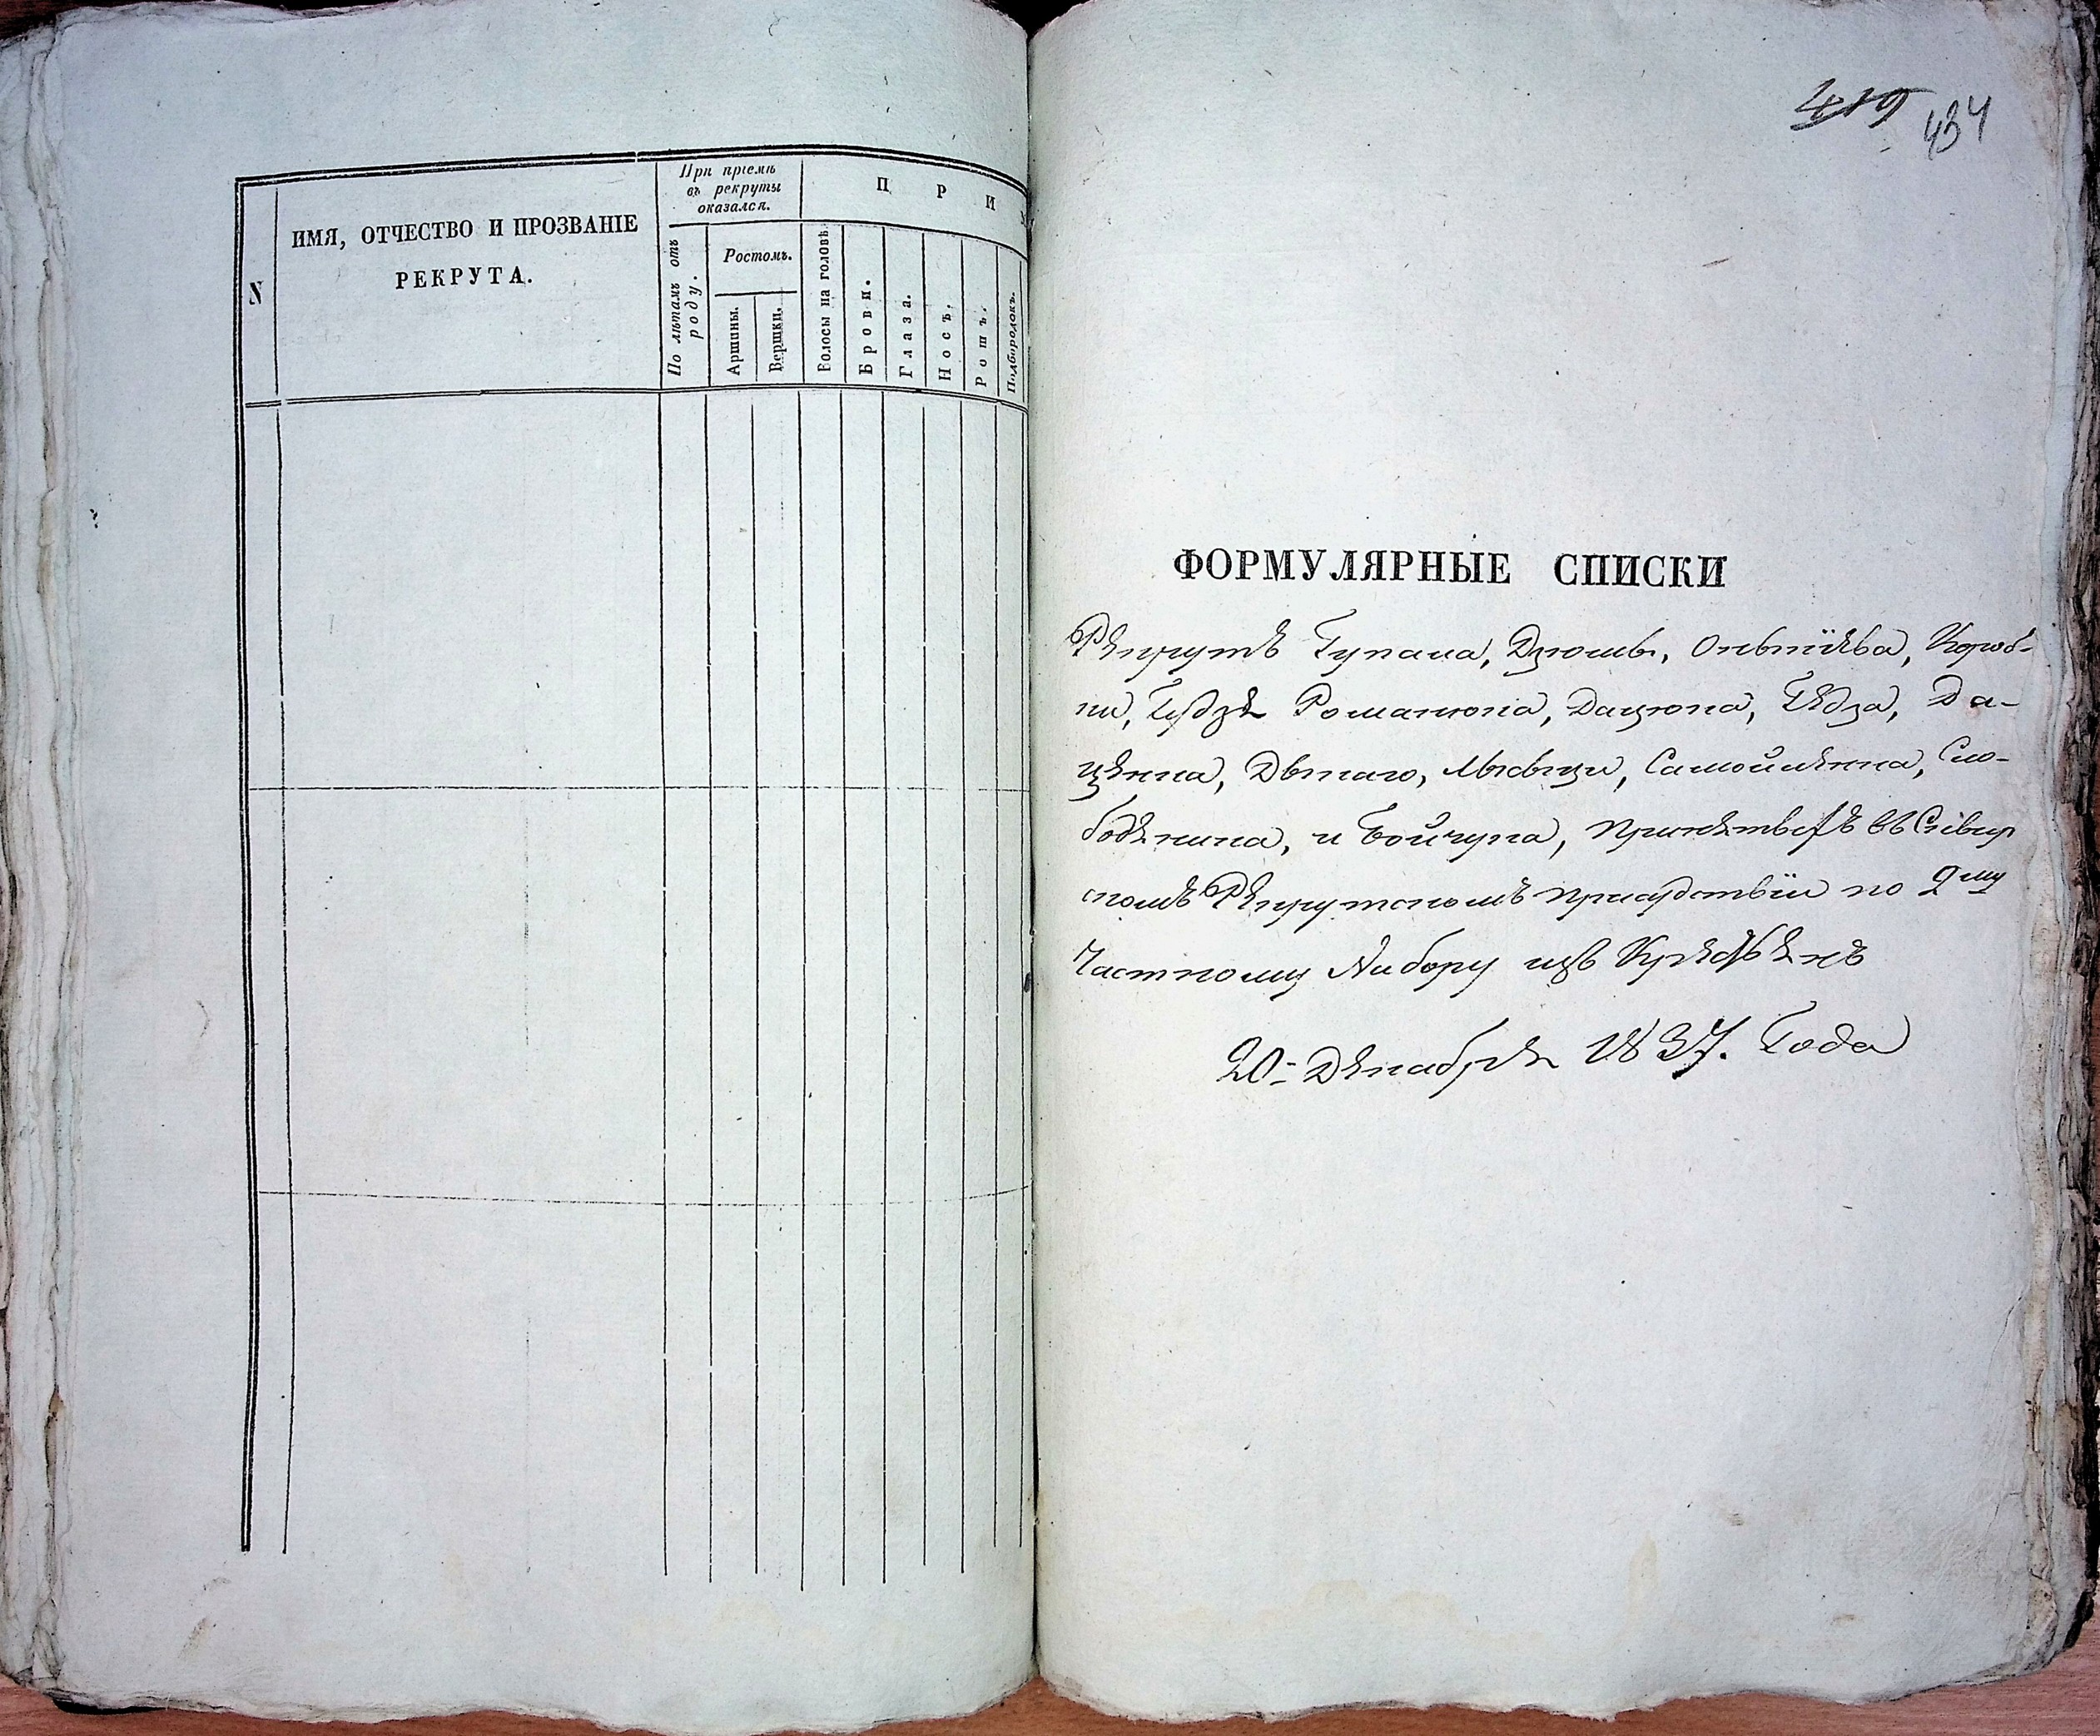 N
ИМЯ, ОТЧЕСТВО И ПРОЗВАНІЕ
РЕКРУТА.
При пріемѣ
въ рекруты
оказался.
По лѣтамъ отъ
роду.
Ростомъ.
Аршины.
Вершки.
П Р И
Волосы на головѣ.
Брови.
Глаза.
Носъ.
Ротъ.
Подбородокъ.
419 434
ФОРМУЛЯРНЫЕ СПИСКИ
Рекрутъ Гупала, Дзюмы,
Романюка, Дацюка, Гедза, Да-
ценка, Самойленка, Сло-
бодяника, и Бойчука, принятыхъ въ Сквир
скомъ Рекрутскомъ присудствіи по 2му
Частному Набору изъ
20 Декабря 1837. Года